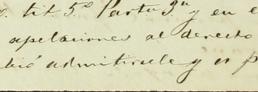 tit 5º Part 3ª y en e
apelaciones al derecho
bió admitirsele y es p